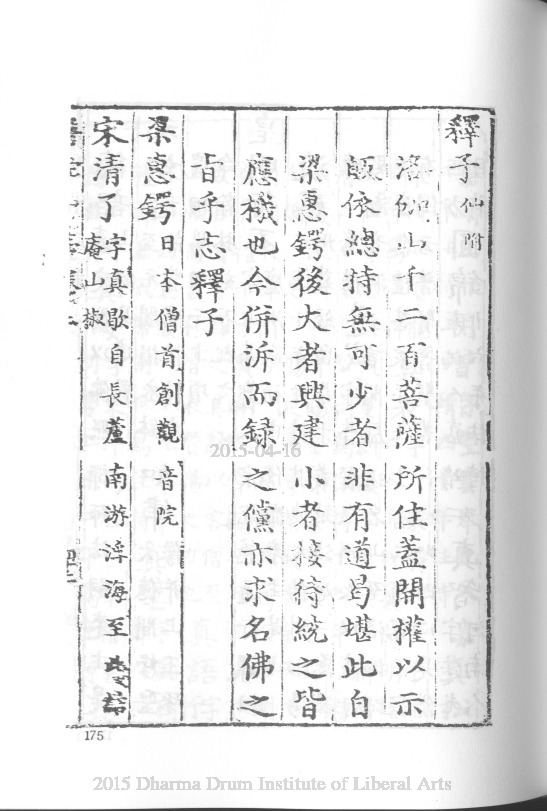 釋子仙附
洛伽山千二百菩薩所住蓋開權以示
皈依總持無可少者非有道曷堪此自
梁惠鍔後大者興建小者接待統之皆
應機也今併泝而録之儻亦求名佛之
旨乎志釋子
梁惠鍔日本僧首創觀音院
宋清了字真歇自長蘆南游浮海至此結
菴山椒
175
2015-04-16
2015 Dharma Drum Institute of Liberal Arts